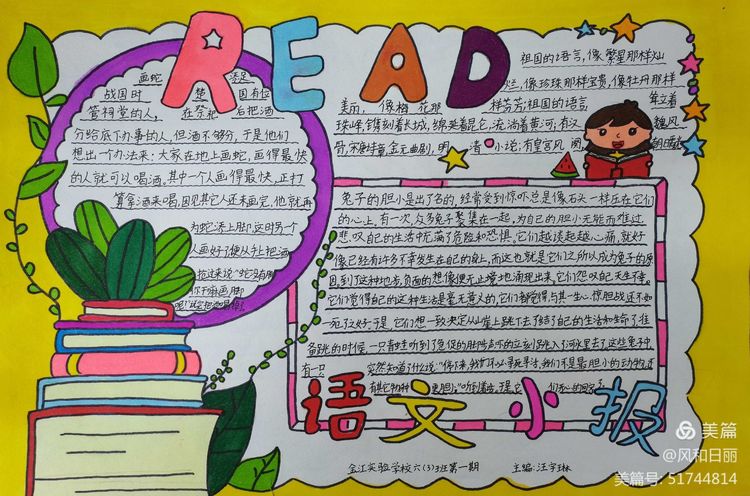 READ
画蛇 添足
战国时 楚 国有位
管祠堂的人, 在祭祀 后把酒
分给底下办事的人,但酒不够分,于是他们
想出一个办法来:大家在地上画蛇,画得最快
的人就可以喝酒。其中一个人画得最快,正打
算拿酒来喝,因见其它人还未画完,他就再
为蛇添上脚这时另一
人画好了便从手上把酒
抢过来说"蛇没有脚
你干嘛画脚
祖国的语言,像繁星那样灿
烂,像珍珠那样宝贵,像牡丹那样
美丽,像梅花那 样芬芳;祖国的语言 耸立着
珠峰,镌刻着长城,绵延着昆仑,流淌着黄河;有汉 魏风
骨,宋唐诗章,金元曲剧,明 清小说;有皇宫风
兔子的胆小是出了名的,经常受到惊吓总是像石头一样压在它们
的心上。有一次,众多兔子聚集在一起,为自己的胆小无能而难过,
悲叹自己的生活中充满了危险和恐惧。它们越谈越心痛,就好
像已经有许多不幸发生在自己的身上,而这也就是它们之所以成为兔子的原
因。到了这种地步,负面的想像便无止境地涌现出来。它们怨叹自己天生不幸
它们觉得自己的这种生活是毫无意义的,它们都觉得与其一生心惊胆战还不如
一死了好。于是,它们想一致决定从山崖上跳下去了结了自己的生活和生命了准
备跳的时候,一只青蛙听到了急促的脚步声
有一只 突然知道了什么说:"停下来,我们不必寻死寻活,我们不是最胆小的动物,还
有其它物种 更胆
语文小报
金江实验学校六(3)班第一期 主编:汪宇琳
美篇
@风和日丽
美篇号:51744814